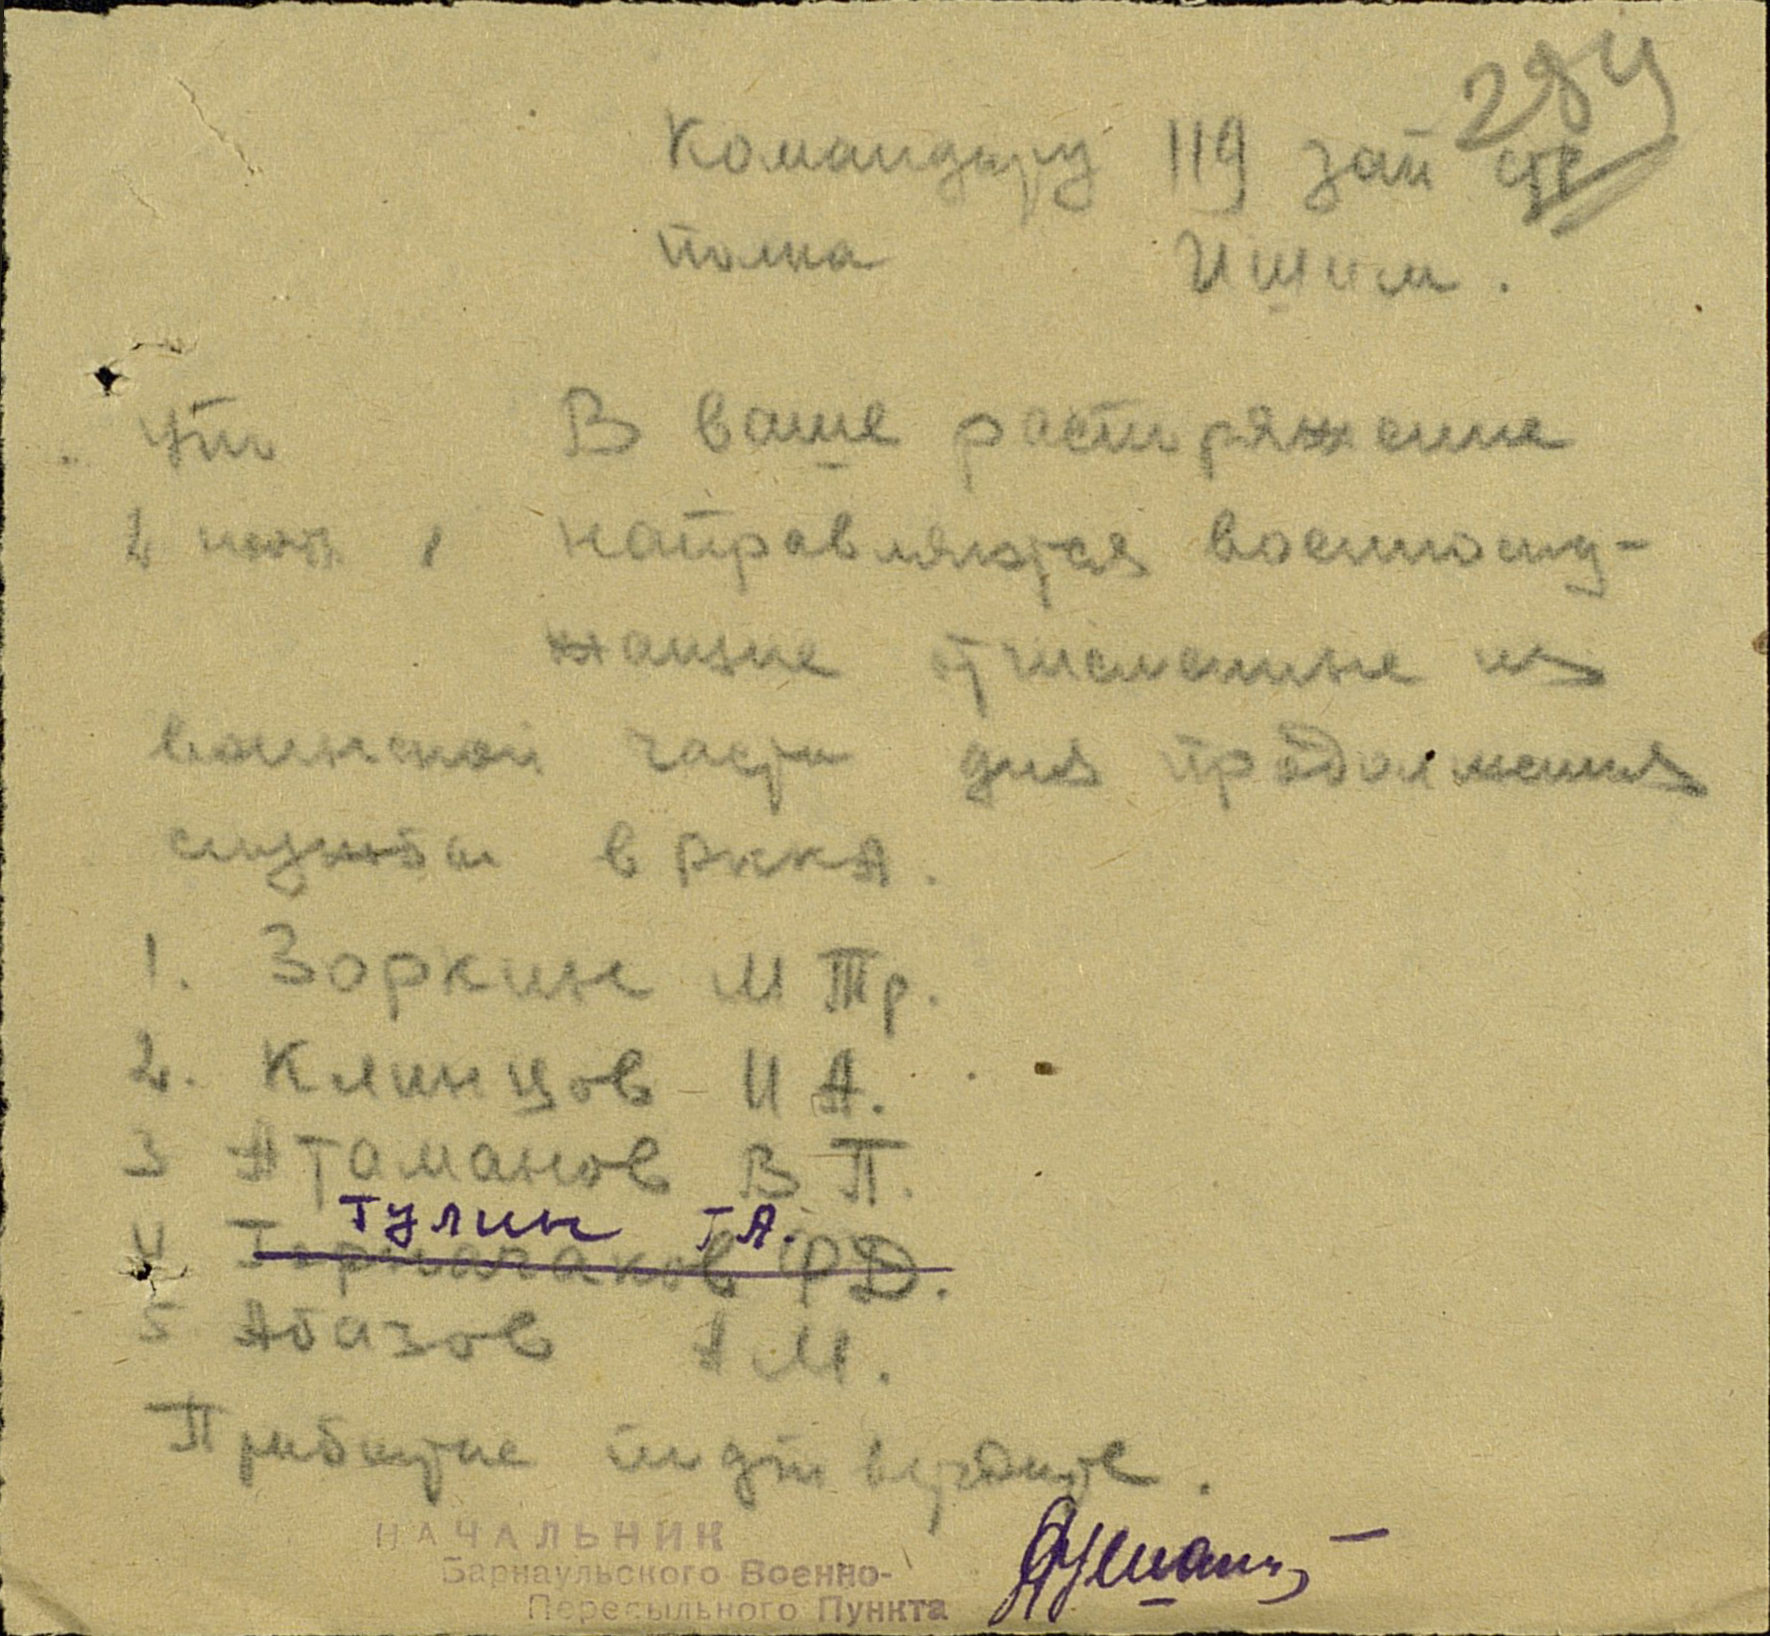 284
Командиру 119 зап стр
полка Ишим.
В ваше распоряжение
направляются военнослу-
жащие отчисленные из
воинской части для продолжения
службы в РККА.
1. Зоркин М Тр.
2. Клинцов И А.
3 Атаманов В П.
Тулин Т А.
4 Ф Д.
5 Абазов А М.
Прибытие подтвердите.
НАЧАЛЬНИК
Барнаульского Военно-
Пересыльного Пункта